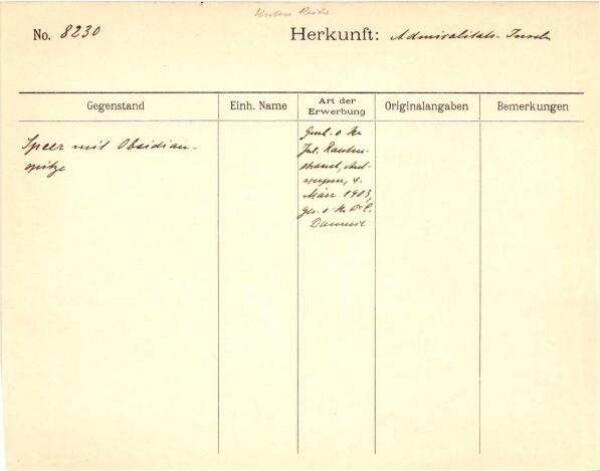 Untere Reihe
No. 8230
Herkunft: Admiralitäts-Inseln
Gegenstand
Einh. Name
Art der
Erwerbung
Originalangaben
Bemerkungen
Speer mit Obsidian-
spitze
Jul. Rauten-
strauch, Ant-
werpen, 4.
März 1903,